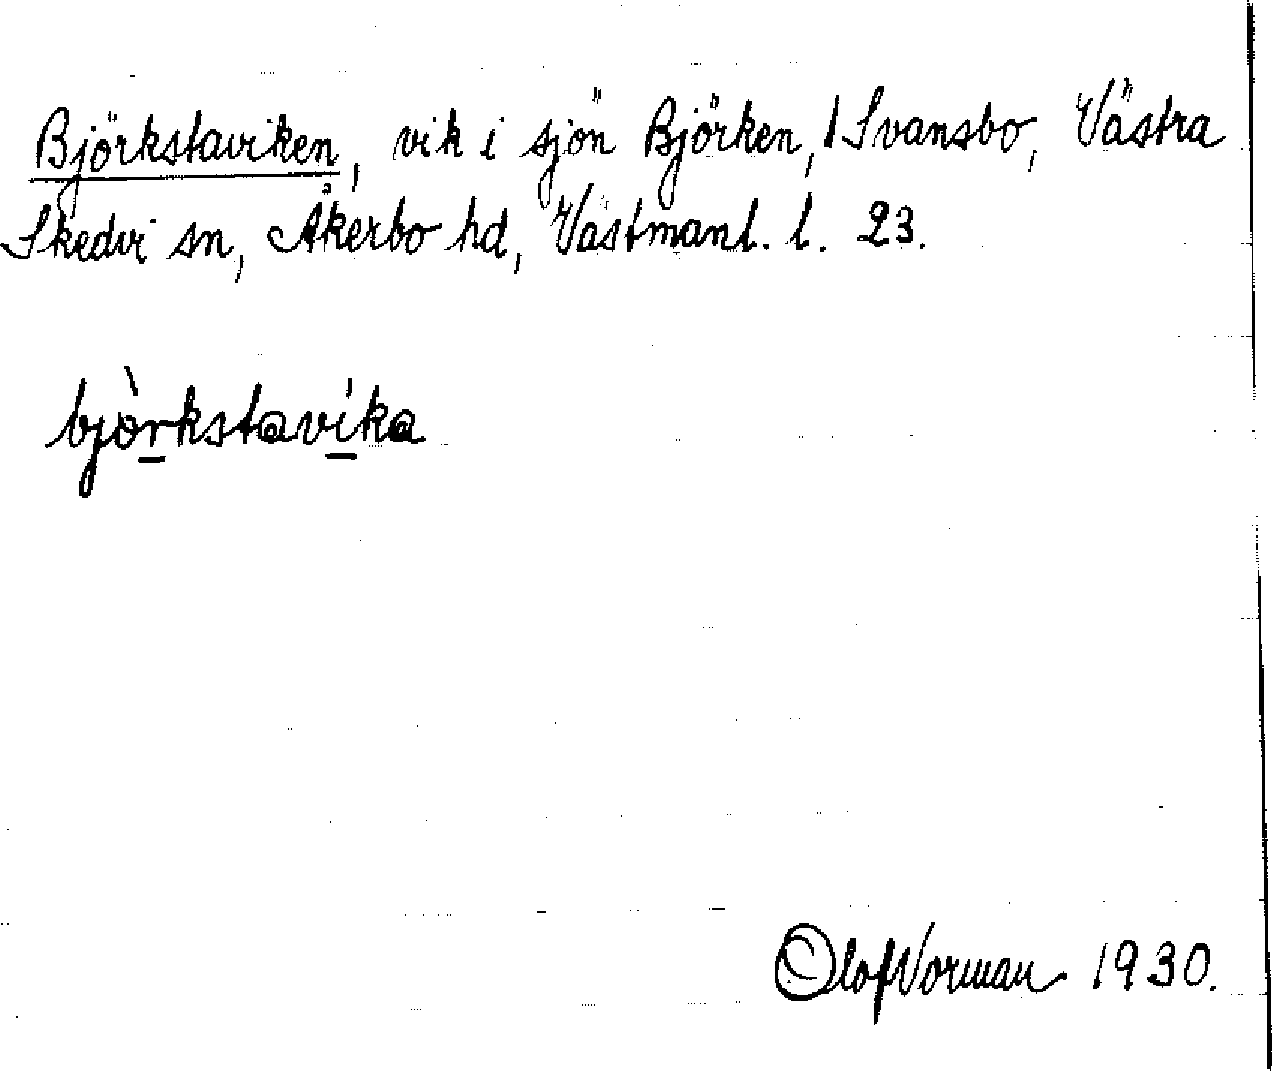 Björkstaviken, vik i sjön Björken, Svansbo, Västra
Skedvi sn, Åkerbo hd, Västmanl. l. 23.
bjòrkstavíka
Olof Norman 1930.